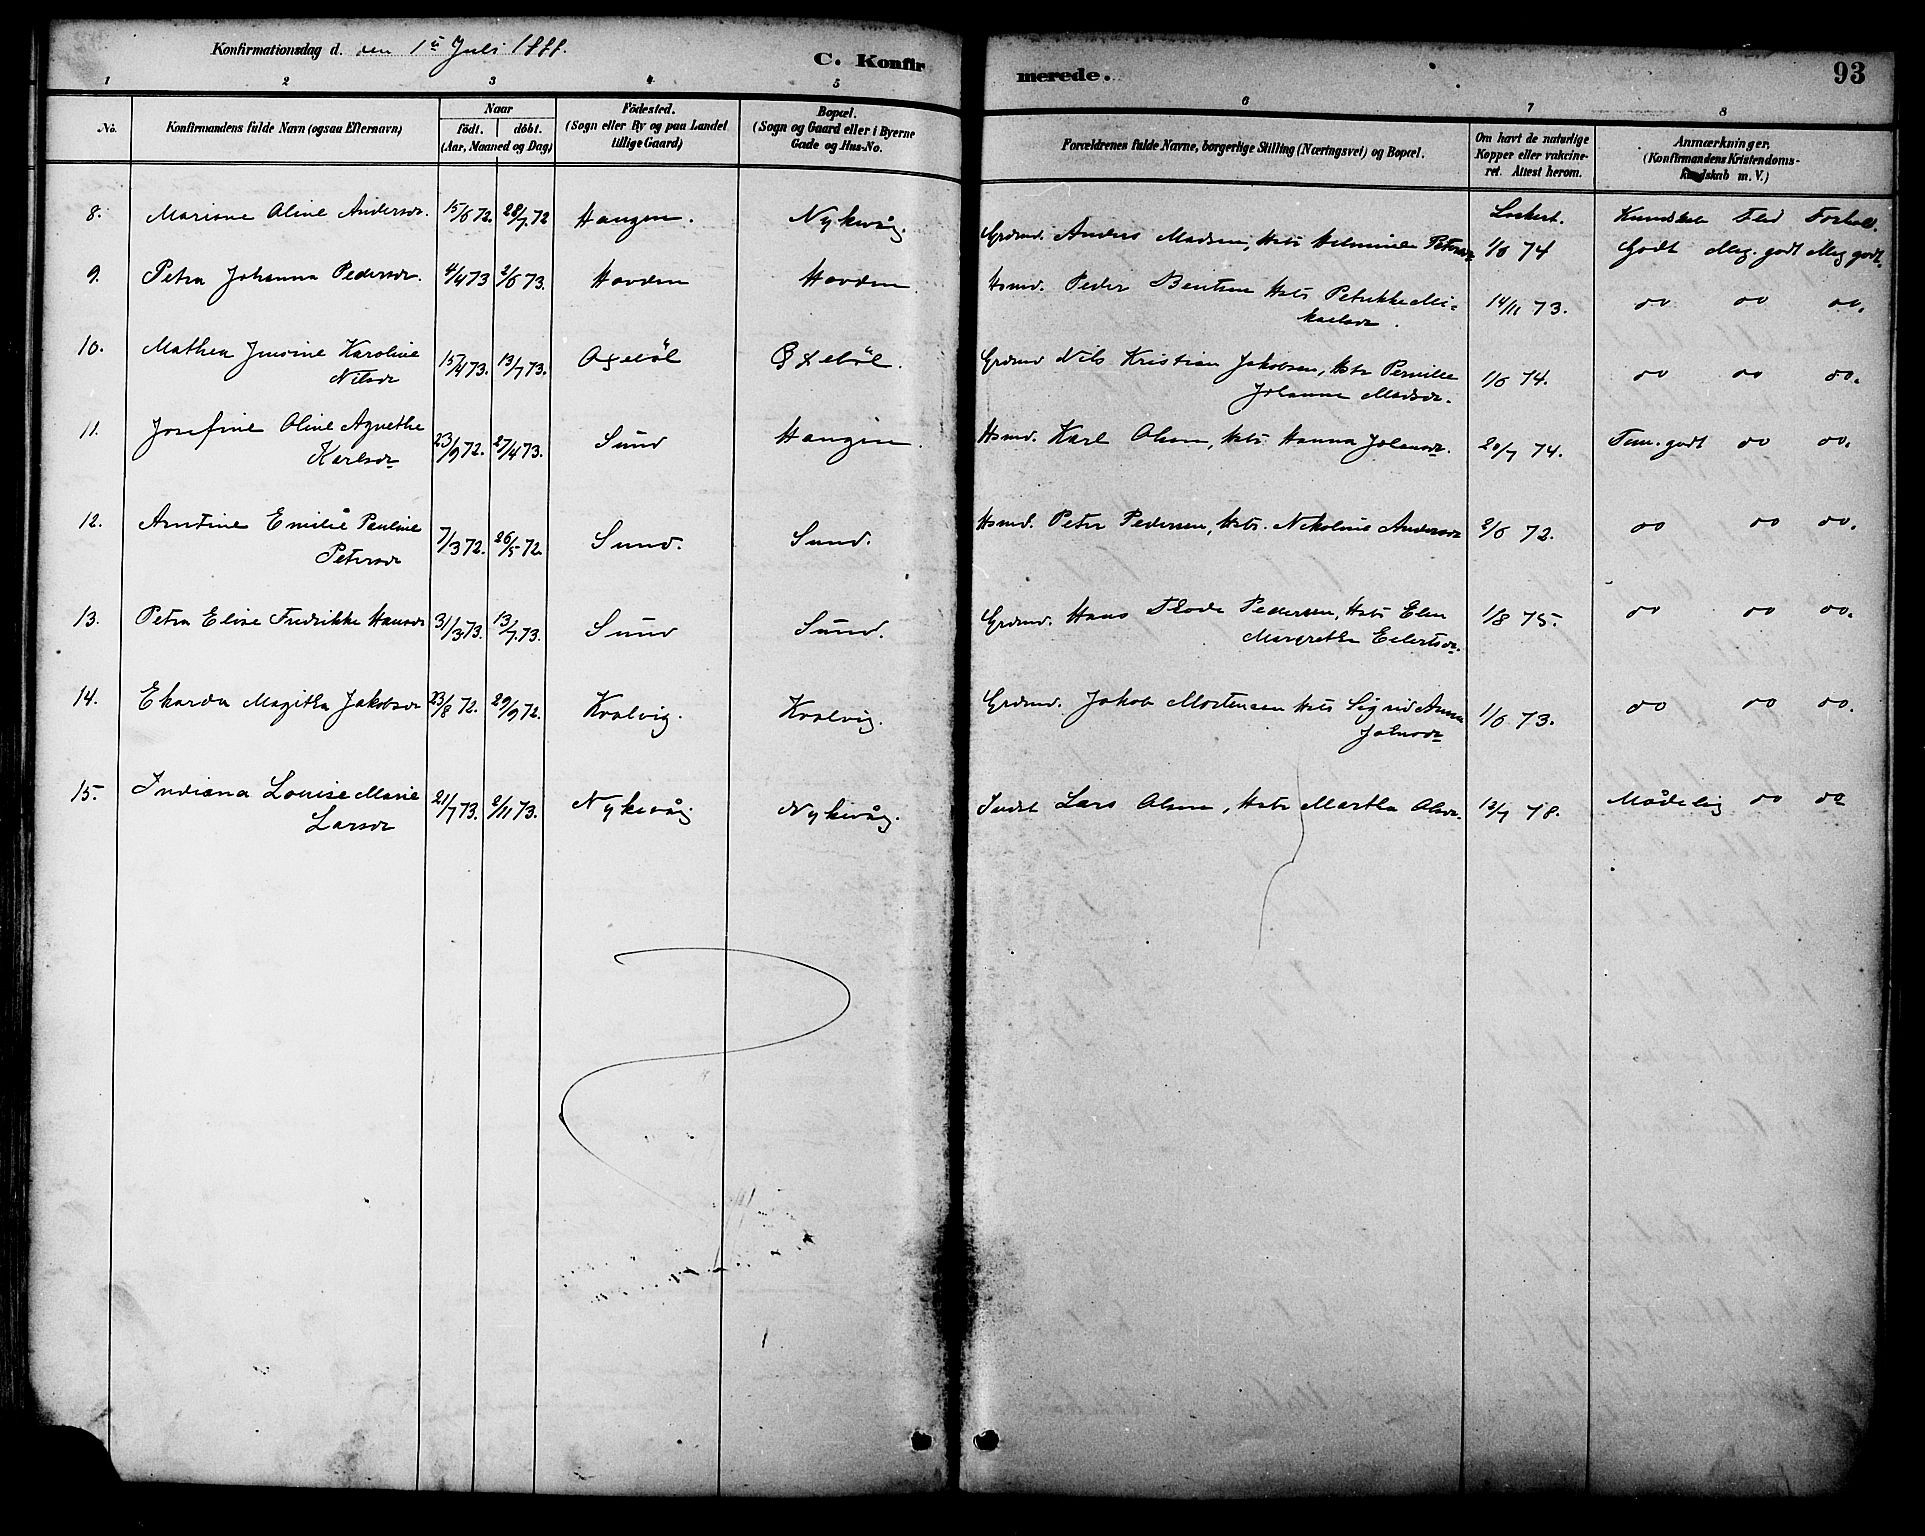 Konfirmationsdag d. den 1ste Juli 1888.
C. Konfirmerede.
93
1 2 3 4 5 6 7 8
No.
Konfirmandens fulde Navn (ogsaa Efternavn)
Naar
födt. döbt.
(Aar, Maaned og Dag)
Födested.
(Sogn eller By og paa Landet
tillige Gaard)
Bopæl.
(Sogn og Gaard eller i Byerne
Gade og Hus-No.
Forældrenes fulde Navne, borgerlige Stilling (Næringsvei) og Bopæl.
Om havt de naturlige
Kopper eller vakcine-
ret. Attest herom.
Anmærkninger,
(Konfirmandens Kristendoms-
kundskab m. V.)
8. Mariane Oline Andersdr. 15/6 72. 28/7 72 Haugen. Nykvåg. Grdmd. Anders Madsen, Hstr 1/6 74 Kundskab Flid Forhold.
Godt Meg. godt Meg godt.
9. Petra Johanna Pedersdr. 4/4 73 2/6 73. Hovden Hovden. Hsmd. Peder Bentsen Hstr Petrikke Mi-
kaelsdr. 14/11 73. do do do.
10. Mathea Karoline
Nilsdr 15/4 73. 13/7 73. Oxebøl Oxebøl. Grdmd Nils Kristian Jakobsen, Hstr Pernille
Johanna Madsdr. 1/6 74. do do do.
11. Josefine Oline Agnethe
Karlsdr 23/9 72. 27/4 73. Sund Haugen. Hsmd. Karl Olsen, Hstr. Hanna Johansdr. 20/7 74. Tem. godt do do.
12. Arntine Emilie Pauline
Petersdr 7/3 72. 26/5 72. Sund. Sund. Hsmd. Peter Pedersen, Hstr. Nikoline Andersdr 2/6 72. do do do.
13. Petra Elise Fredrikke Hansdr 31/3 73. 13/7 73. Sund Sund. Grdmd. Hans Pedersen, Hstr Elen
Margrethe Eilertsdr. 1/8 75. do do do.
14. Ekarda Magitha Jakobsdr 23/8 72. 29/9 72. Kvalvig. Kvalvig. Grdmd. Jakob Mortensen Hstr Sigrid Anna
Johnsdr 1/6 73. do do do.
15. Indiana Louise Marie
Larsdr 21/7 73. 2/11 73. Nykvåg Nykvåg. Indst Lars Olsen, Hstr Martha Olsdr. 12/7 78. Mådelig do do